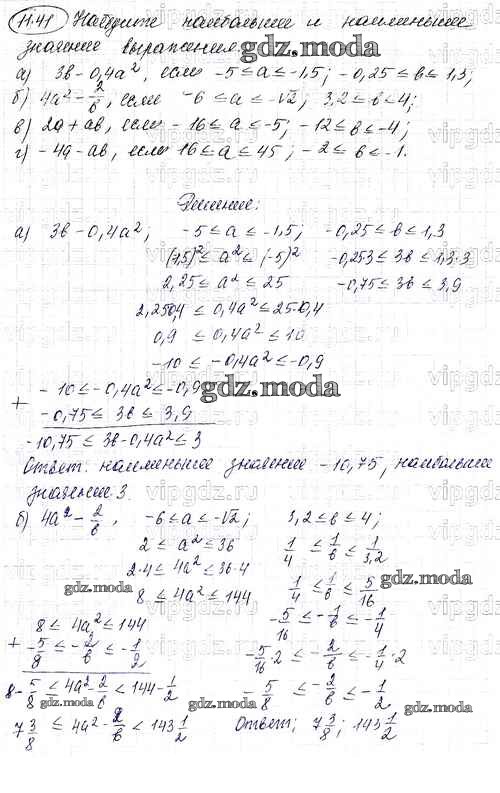 11.41 Найдите наибольшее и наименьшее
значение выражения.
gdz.moda
а) 3в-0,4a², если -5≤a≤-1,5; -0,25≤в≤1,3;
б) 4a²-2/в, если -6≤a≤-√2; 3,2≤в≤4;
в) 2a+aв, если -16≤a≤-5; -12≤в≤-4;
г) -4a-aв, если 16≤a≤45; -2≤в≤-1.
Решение:
а) 3в-0,4a²; -5≤a≤-1,5; -0,25≤в≤1,3
(-1,5)²≤a²≤(-5)² -0,25·3≤3в≤1,3·3
2,25≤a²≤25 -0,75≤3в≤3,9
2,25·0,4≤0,4a²≤25·0,4
0,9≤0,4a²≤10
-10≤-0,4a²≤-0,9
+ -10≤-0,4a²≤-0,9
gdz.moda
-0,75≤3в≤3,9
-10,75≤3в-0,4a²≤3
Ответ: наименьшее значение -10,75, наибольшее
значение 3.
б) 4a²-2/в, -6≤a≤-√2; 3,2≤в≤4;
2≤a²≤36 1/4≤1/в≤1/3,2
2·4≤4a²≤36·4
gdz.moda
8≤4a²≤144 1/4≤1/в≤5/16
gdz.moda
8≤4a²≤144 -5/16≤-1/в≤-1/4
+ -5/8≤-2/в≤-1/2 -5/16·2≤-2/в≤-1/4·2
8-5/8≤4a²-2/в≤144-1/2 -5/8≤-2/в≤-1/2
gdz.moda gdz.moda gdz.moda
7 3/8≤4a²-2/в≤143 1/2 Ответ: 7 3/8; 143 1/2
vipgdz.ru